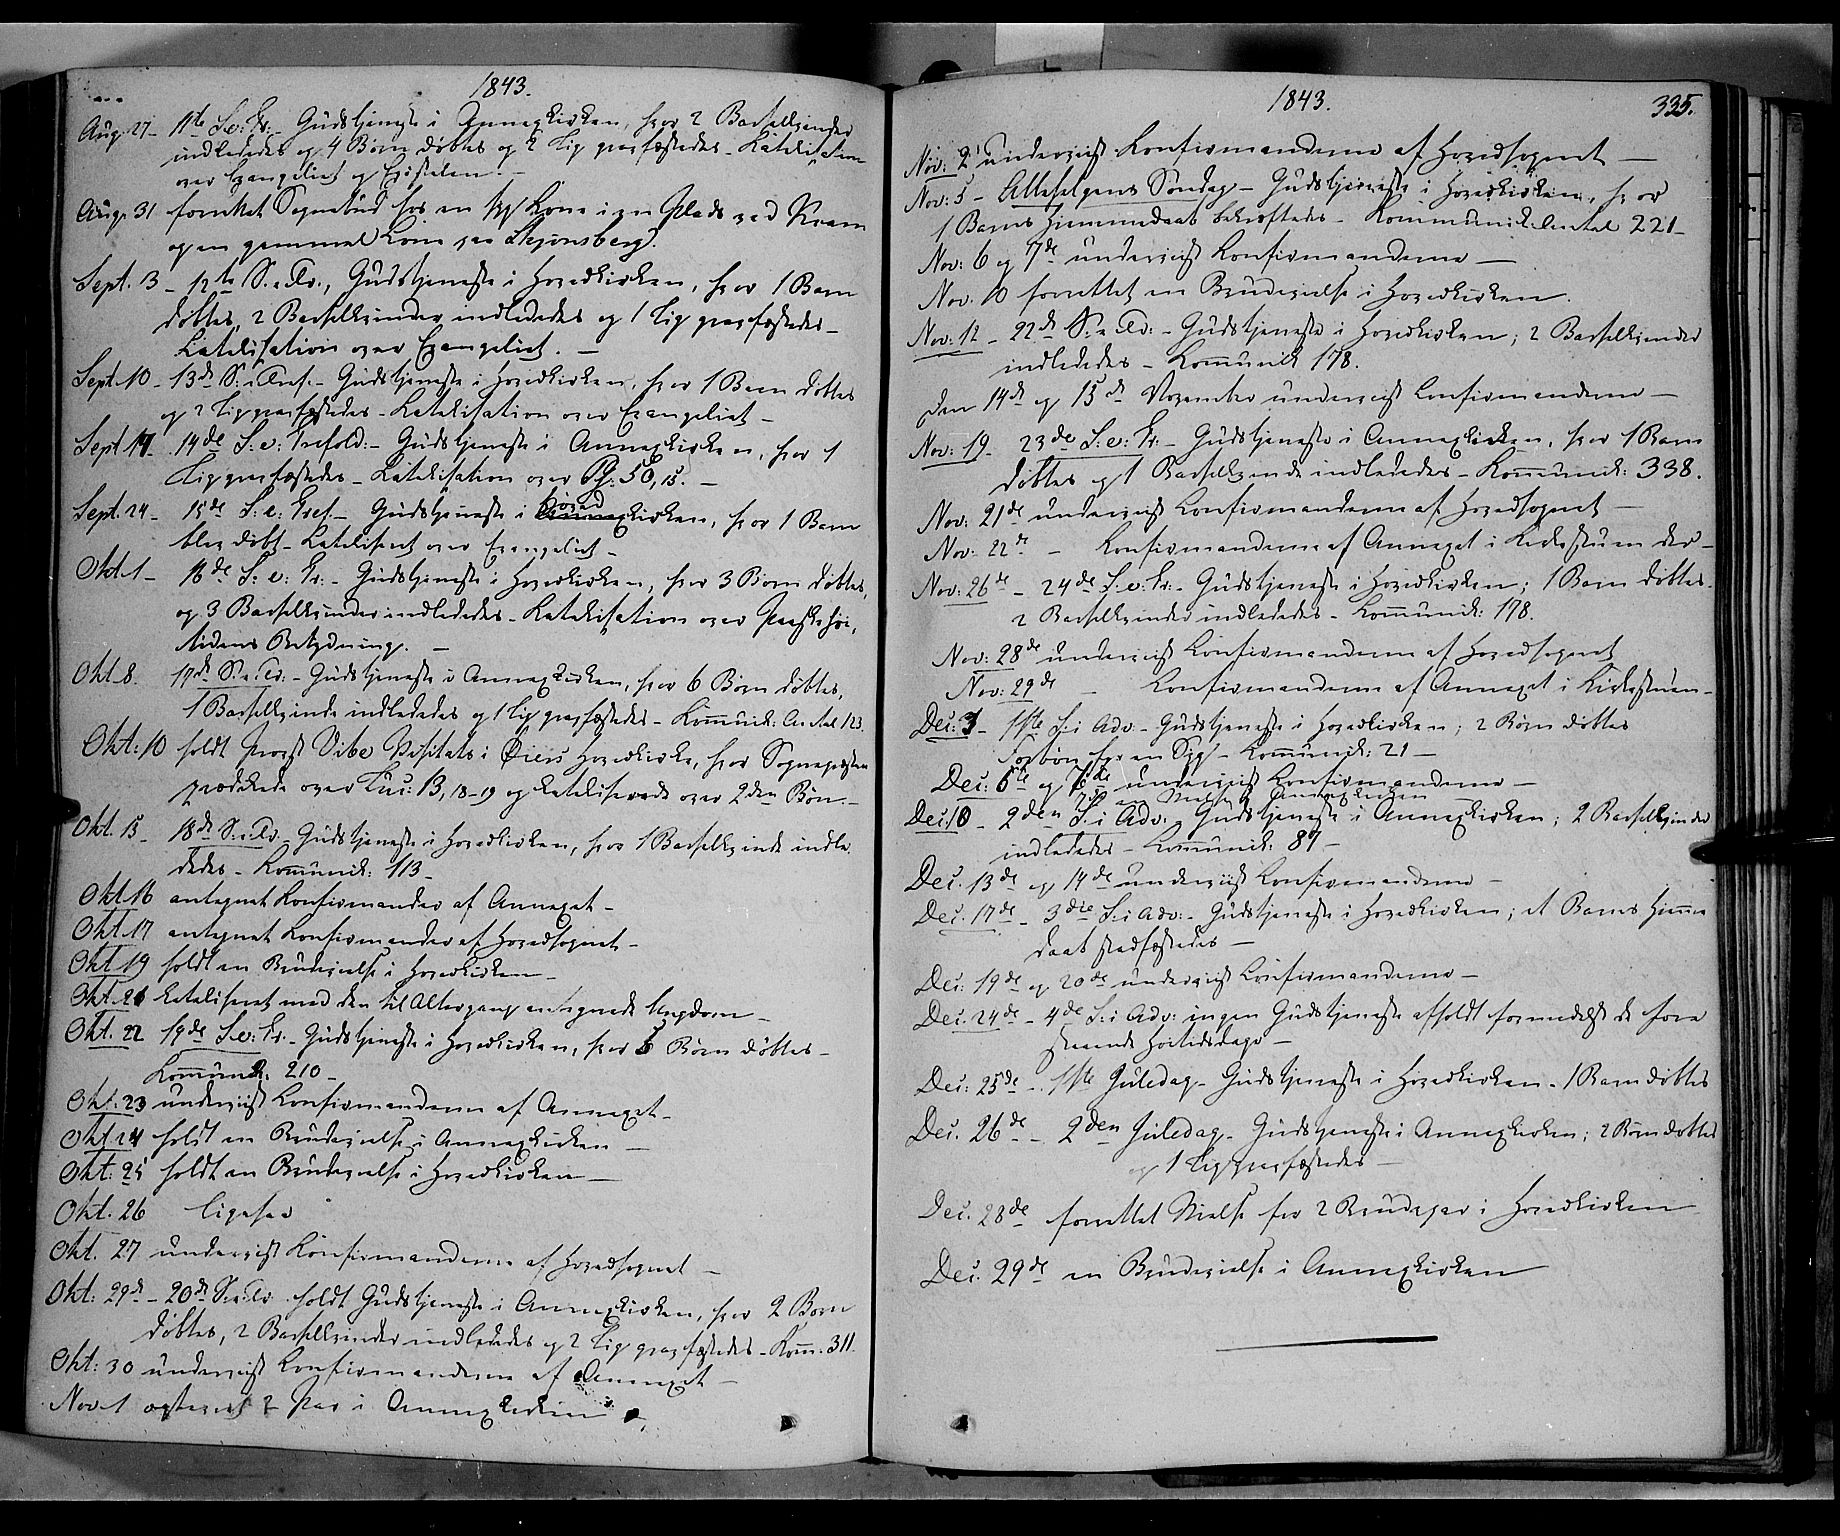 1843.
Aug. 27 - 11te S. e. Tr. - Gudstjeneste i Annexkirken, hvor 2 Barselkvinder
indlededes og 4 Børn døbtes og 2 Lig graffæstedes - Katekisation
over Evangeliet og Epistelen. -
Aug. 31 forrettet Sognebud hos en syg Kone i en Plads ved
og en gammel Kone paa Skjønsberg.
Sept. 3 - 12te S. e. Tr., Gudstjeneste i Hovedkirken, hvor 1 Barn
døbtes, 2 Barselkvinder indlededes og 1 Lig graffæstedes -
Katekisation over Evangeliet. -
Sept. 10 - 13de S. e. Tref. - Gudstjeneste i Hovedkirken, hvor 1 Barn døbtes
og 2 Lig graffæstedes - Katekisation over Evangeliet -
Sept. 17 - 14de S. e. Trefold: - Gudstjeneste i Annexkirken, hvor 1
Lig graffæstedes - Katekisation over Ps: 50, 15. -
Sept. 24 - 15de S: e: Tref - Gudstjeneste i Hovedkirken, hvor 1 Barn
blev døbt - Katekiseret over Evangeliet -
Okt. 1 - 16de S: e: Tr: - Gudstjeneste i Hovedkirken, hvor 3 Børn døbtes,
og 3 Barselkvinder indlededes - Katekisation over Paaskehøi-
tidens Betydning. -
Okt. 8. 17de S. e. Tr: - Gudstjeneste i Annexkirken, hvor 6 Børn døbtes,
1 Barselkvinde indlededes og 1 Lig graffæstedes - Kommunik: Antal 123.
Okt: 10 holdt Provst Vibe Visitats i Øiers Hovedkirke, hvor Sognepræsten
prædikede over Luc: 13, 18-19 og katekiserede over 2den Bøn. -
Okt. 15 - 18de S. e. Tr - Gudstjeneste i Hovedkirken, hvor 1 Barselkvinde indle-
dedes - Kommunik: 113 -
Okt. 16 antegnet Konfirmander af Annexet -
Okt. 17 antegnet Konfirmander af Hovedsognet -
Okt. 19 holdt en Brudevielse i Hovedkirken -
Okt. 21 katekiseret med den til Altergang antegnede Ungdom -
Okt. 22 19de S. e: Tr. - Gudstjeneste i Hovedkirken, hvor 5 Børn døbtes -
Kommunik. 210 -
Okt: 23 underviist Konfirmanderne af Annexet -
Okt. 24 holdt en Brudevielse i Annexkirken -
Okt: 25 holdt en Brudevielse i Hovedkirken -
Okt. 26 ligesaa
Okt. 27 underviist Konfirmanderne af Hovedsognet -
Okt: 29de - 20de S. e. Tr holdt Gudstjeneste i Annexkirken, hvor 2 Børn
døbtes, 2 Barselkvinder indlededes og 2 Lig graffæstedes - Kom: 311.
Okt: 30 underviist Konfirmanderne af Annexet -
Nov. 1 ægteviet 2 Par i Annexkirken -
1843. 335.
Nov: 2 underviist Konfirmanderne af Hovedsognet -
Nov: 5 - Allehelgens Søndag - Gudstjeneste i Hovedkirken, hvor
1 Barns Hjemmedaab bekræftedes - Kommunik: Antal 221 -
Nov: 6 og 7de underviist Konfirmanderne -
Nov. 10 forrettet en Brudevielse i Hovedkirken.
Nov: 12 - 22de S. e. Tr: - Gudstjeneste i Hovedkirken; 2 Barselkvinder
indlededes - Kommunik 178.
den 14de og 15de November underviist Konfirmanderne -
Nov: 19 - 23de S: e: Tr: - Gudstjeneste i Annexkirken, hvor 1 Barn
døbtes og 1 Barselkvinde indlededes - Kommunik: 338.
Nov: 21de underviist Konfirmanderne af Hovedsognet -
Nov: 22de - Konfirmanderne af Annexet i Kirkestuen der -
Nov: 26de - 24de S. e: Tr: - Gudstjeneste i Hovedkirken; 1 Barn døbtes.
2 Barselkvinder indlededes - Kommunik: 178.
Nov: 28de underviist Konfirmanderne af Hovedsognet
Nov: 29de - Konfirmanderne af Annexet i Kirkestuen -
Dec: 3 - 1ste S: i Adv - Gudstjeneste i Hovedkirken; 2 Børn døbtes
Forbøn for en Syg - Kommunik: 21 -
Dec: 6te og 7de underviist Konfirmanderne -
Dec: 10 - 2den S: i Adv: - Gudstjeneste i Annexkirken; 2 Barselkvinder
indlededes - Kommunik: 87 -
Dec. 13de og 14de underviist Konfirmanderne -
Dec: 17de - 3die S: i Adv: - Gudstjeneste i Hovedkirken; et Barns Hjemme-
daab stadfæstedes -
Dec: 19de og 20de underviist Konfirmanderne -
Dec. 24de - 4de S: i Adv: ingen Gudstjeneste afholdt formedelst de fore-
staaende Høitidsdage -
Dec: 25de - 1ste Juledag - Gudstjeneste i Hovedkirken - 1 Barn døbtes
Dec. 26de - 2den Juledag - Gudstjeneste i Annexkirken; 2 Børn døbtes
og 1 Lig graffæstedes -
Dec. 28de forrettet Vielse for 2 Brudepar i Hovedkirken
Dec. 29de en Brudevielse i Annexkirken